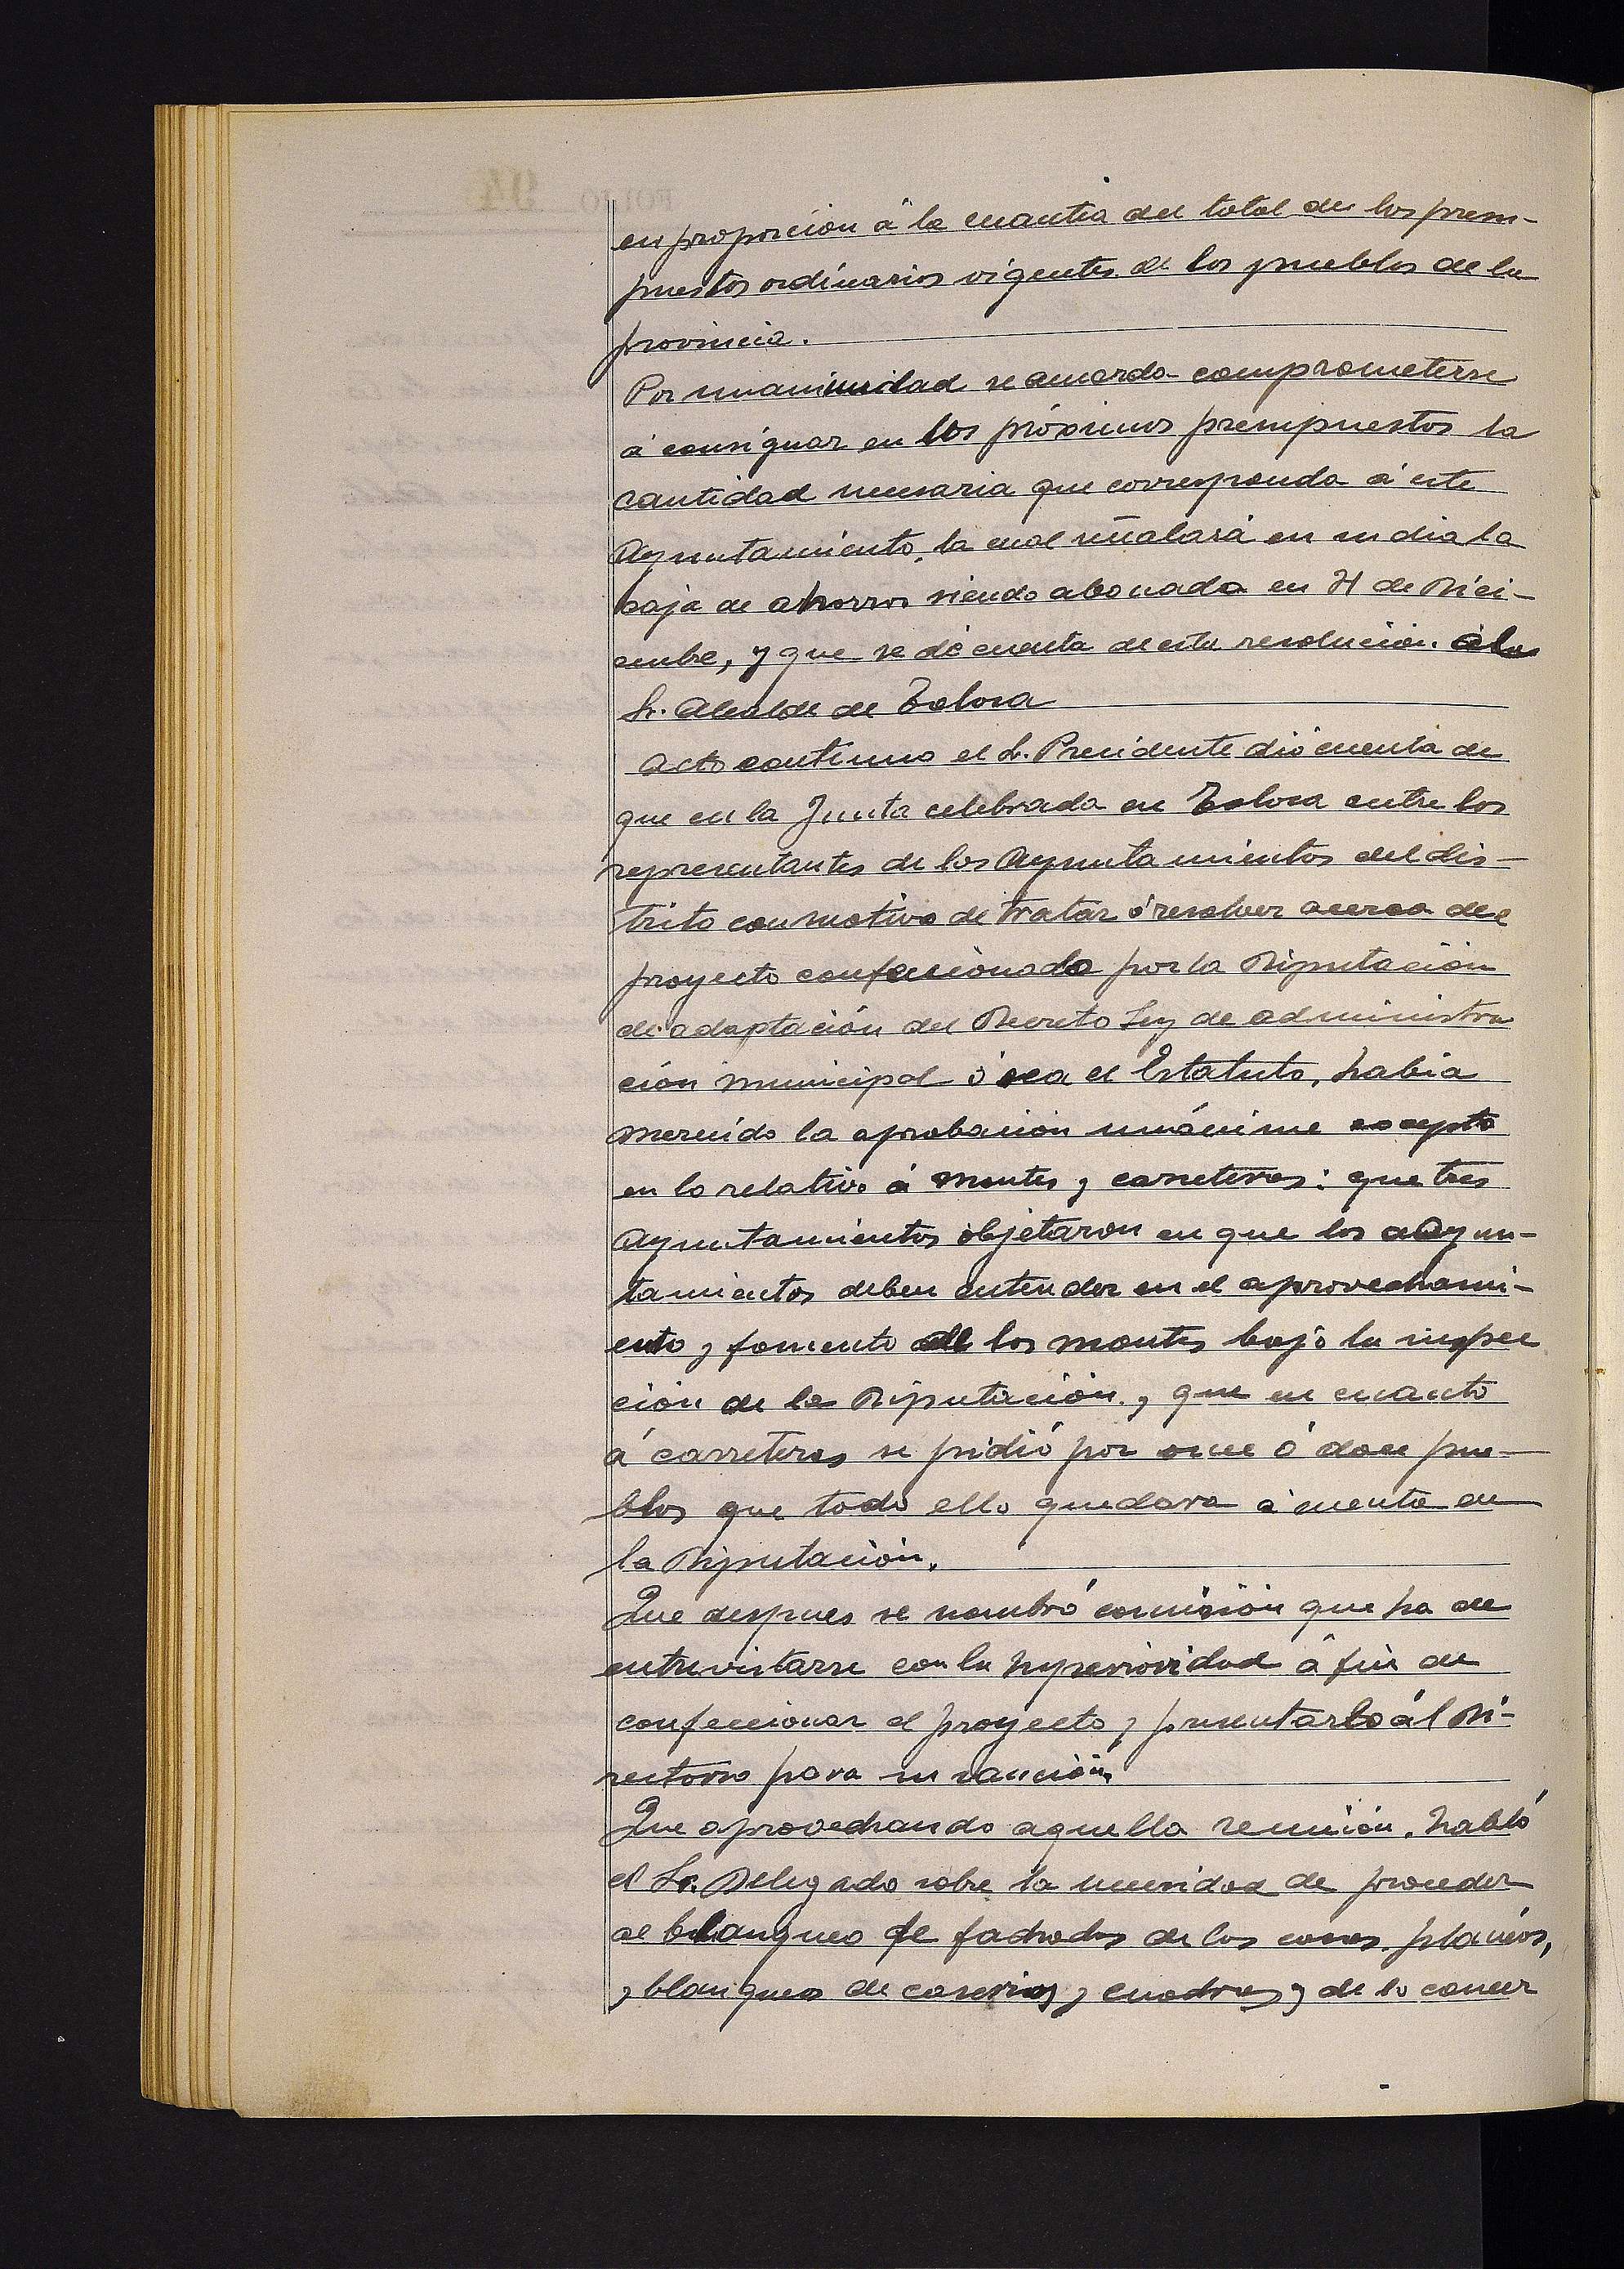 en proporción á la cuantia del total de los presu-
puestos ordinarios vigentes de los pueblos de la
provincia.
Por unanimidad se acuerdo comprometerse
á consignar en los próximos presupuestos la
cantidad necesaria que corresponda á este
Ayuntamiento, la cual señalará en su dia la
caja de ahorros siendo abonada en 31 de Dici-
embre, y que se dé cuenta de esta resolución. al
Sr. Alcalde de Tolosa
Acto continuo el Sr. Presidente dió cuenta de
que en la Junta celebrada en Tolosa entre los
representantes de los Ayuntamientos del dis-
trito con motivo de tratar ó resolver acerca del
proyecto confeccionado por la Diputación
de adaptación del Decreto Ley de administra
ción municipal ó sea el Estatuto, habia
merecido la aprobación unánime excepto
en lo relativo á montes y carreteras: que tres
Ayuntamientos objetaron en que los Ayun-
tamientos deben entender en el aprovechami-
ento y fomento de los montes bajo la inspec
ción de la Diputación, y que en cuanto
á carreteras se pidió por once ó doce pue-
blos que todo ello quedara á cuenta de
la Diputación.
Que despues se nombró comisión que ha de
entrevistarse con la superioridad á fin de
confeccionar el proyecto y presentarlo ál Di-
rectorio para su sanción.
Que aprovechando aquella reunión, habló
el Sr. Delegado sobre la necesidad de proceder
al blanqueo de fachadas de las casas, planeos,
y blanqueo de caserios y cuadras y de lo conver